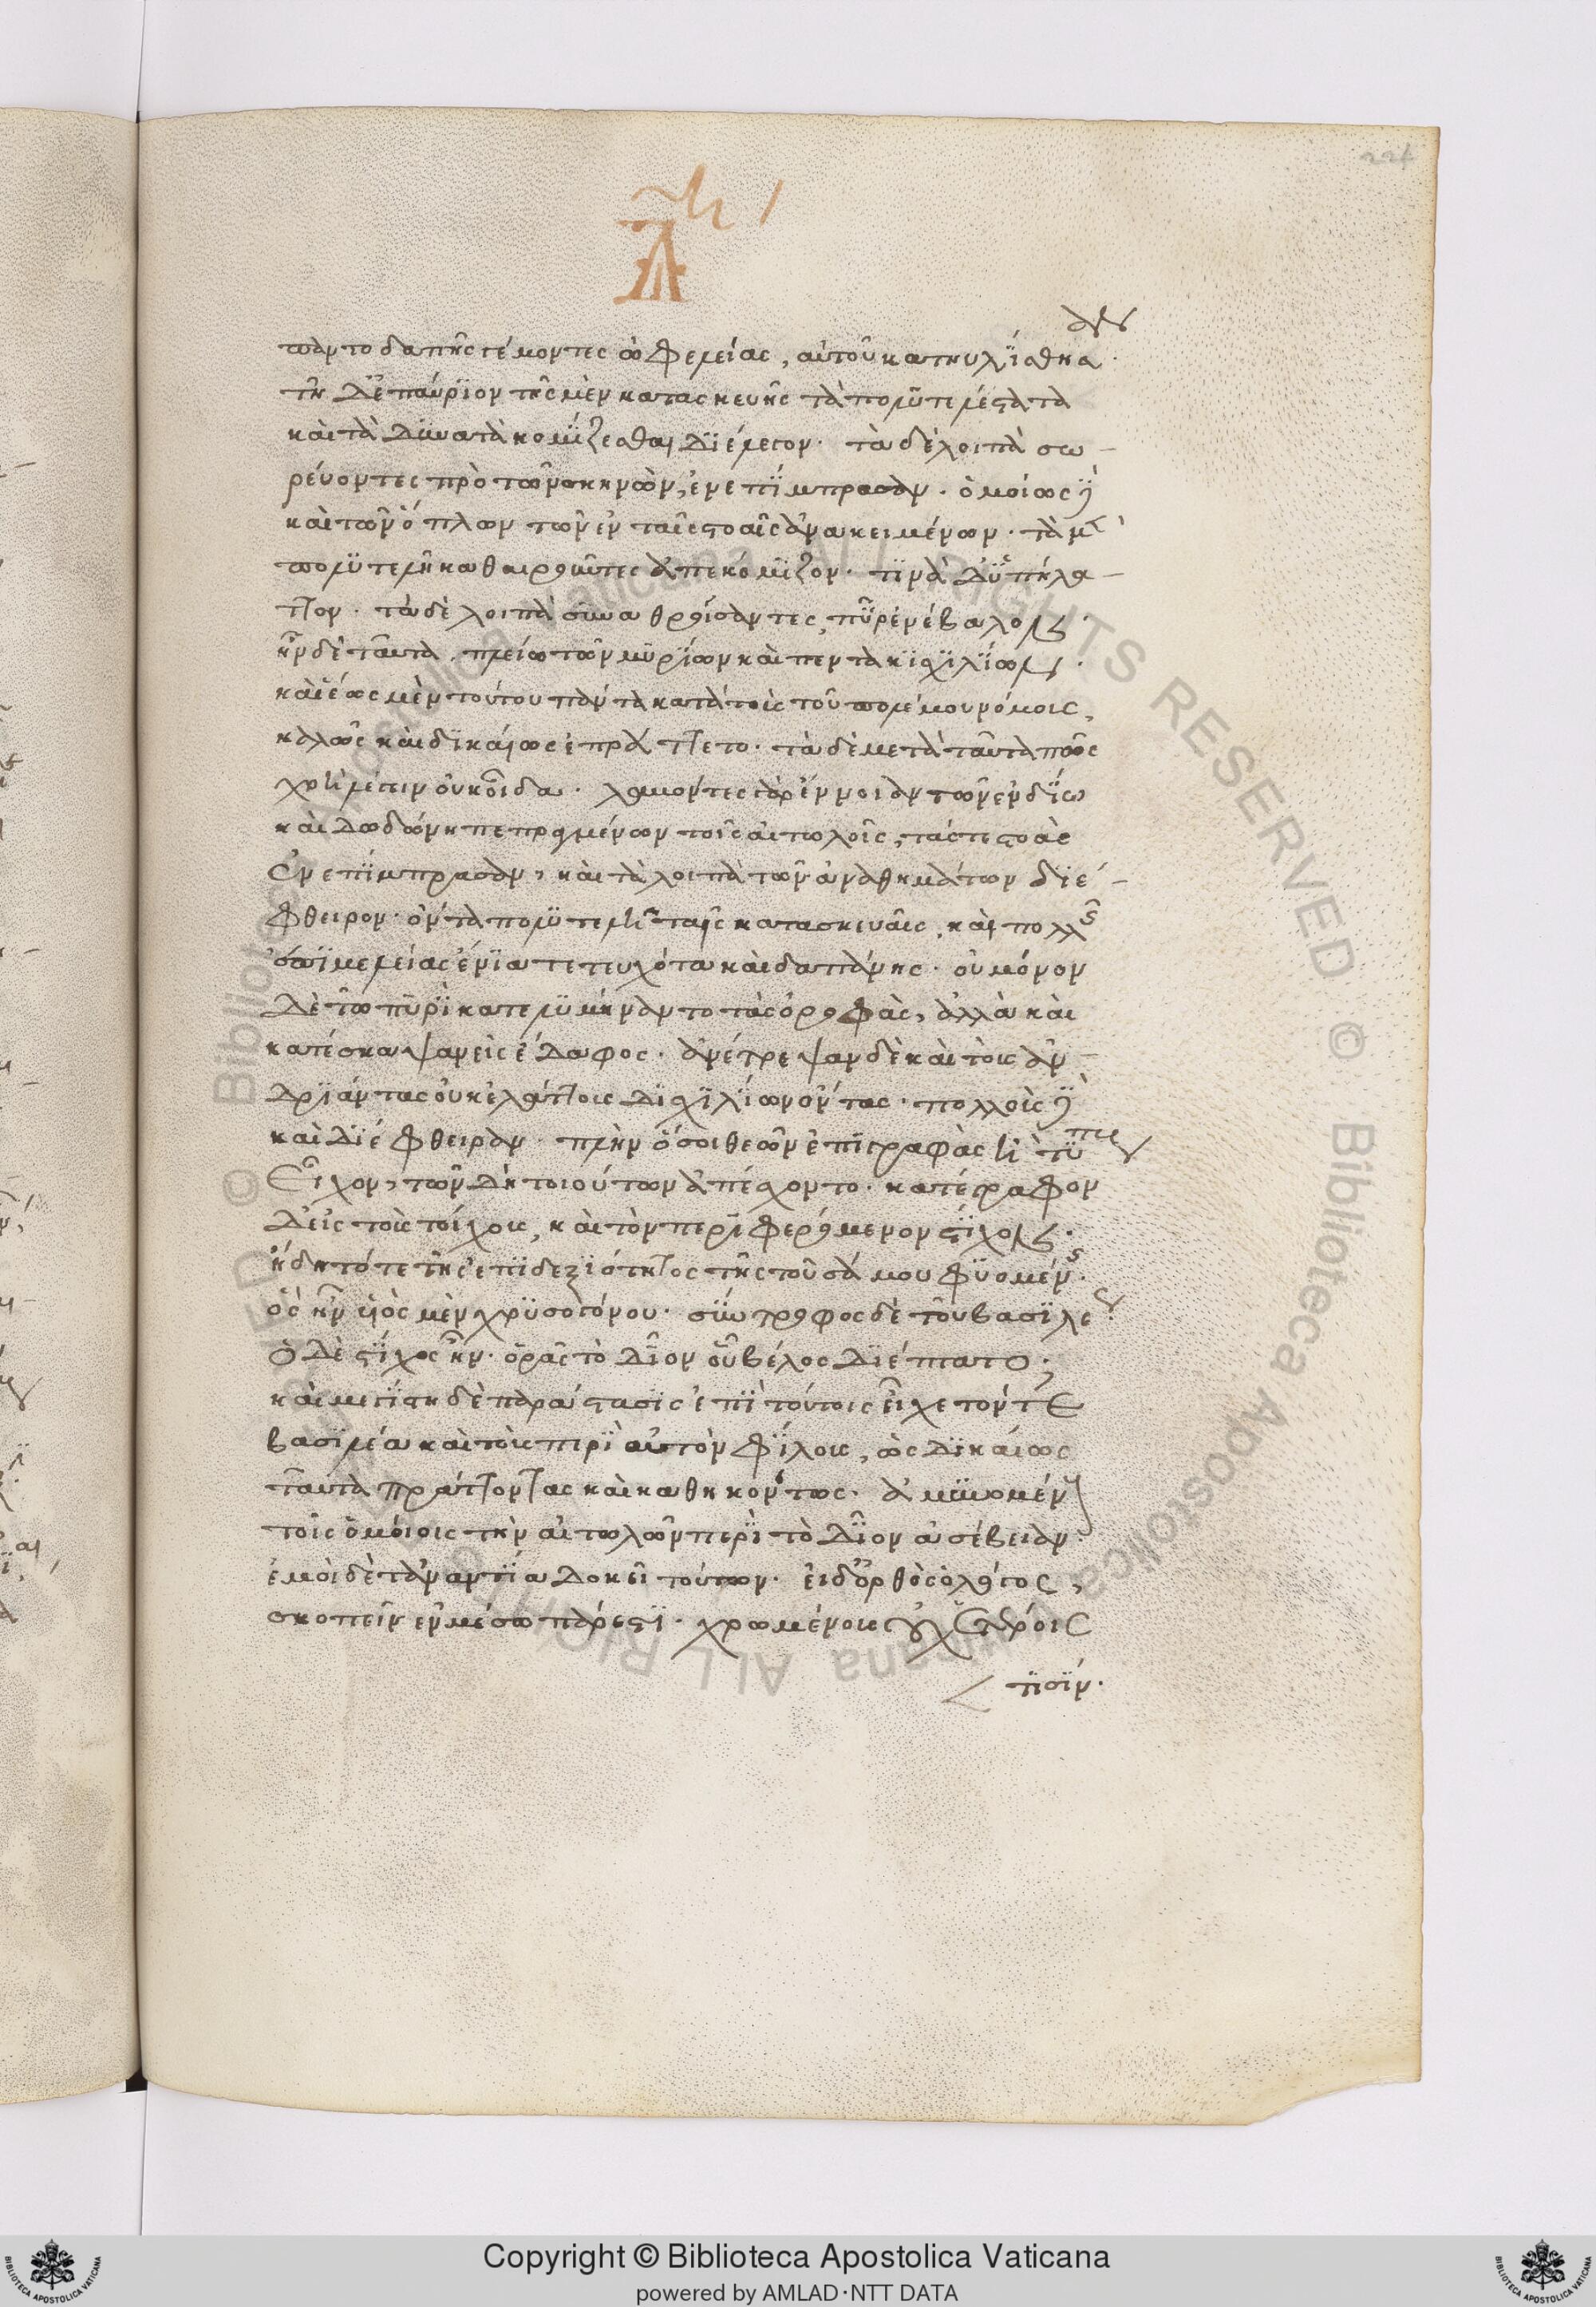 παντοδαπῆς γέμοντες ὠφελείας, αὐτοῦ κατηυλίσθησαν·
τῇ δ' ἐπαύριον τῆς μὲν κατασκευῆς τὰ πολυτελέστατα
καὶ τὰ δυνατὰ κομίζεσθαι διέλεγον· τὰ δὲ λοιπὰ σω-
ρεύοντες πρὸ τῶν σκηνῶν, ἐνεπίμπρασαν· ὁμοίως δὲ
καὶ τῶν ὅπλων τῶν ἐν ταῖς στοαῖς ἀνακειμένων· τὰ μὲν
πολυτελῆ καθαιροῦντες ἀπεκόμιζον· τινὰ δ' ὑπήλλα-
ττον· τὰ δὲ λοιπὰ συναθροίσαντες, πῦρ ἐνέβαλον·
ἦν δὲ ταῦτα πλείω τῶν μυρίων καὶ πεντακισχιλίων·
καὶ ἕως μὲν τούτου πάντα κατὰ τοὺς τοῦ πολέμου νόμους,
καλῶς καὶ δικαίως ἐπράττετο· τὰ δὲ μετὰ ταῦτα πῶς
χρὴ λέγειν οὐκ οἶδα· λαβόντες γὰρ ἔννοιαν τῶν ἐν δίω
καὶ δωδώνη πεπραγμένων τοῖς αἰτωλοῖς, τάς τε στοὰς
ἐνεπίμπρασαν, καὶ τὰ λοιπὰ τῶν ἀναθημάτων διέ-
φθειρον· ὄντα πολυτελῆ ταῖς κατασκευαῖς, καὶ πολλῆς
ἐπιμελείας ἔνια τετευχότα καὶ δαπάνης· οὐ μόνον
δὲ τῶ πυρὶ κατελυμήναντο τὰς ὀροφὰς, ἀλλὰ καὶ
κατέσκαψαν εἰς ἔδαφος· ἀνέτρεψαν δὲ καὶ τοὺς ἀν-
δριάντας οὐκ ἐλάττους δισχιλίων ὄντας· πολλοὺς δὲ
καὶ διέφθειραν· πλὴν ὅσοι θεῶν ἐπιγραφὰς ἢ τύπους
εἶχον, τῶν δὴ τοιούτων ἀπέσχοντο· κατέγραφον
δ' εἰς τοὺς τοίχους, καὶ τὸν περιφερόμενον στίχον·
ἤδη τότε τῆς ἐπιδεξιότητος τῆς τοῦ σάμου φυομένης·
ὃς ἦν υἱὸς μὲν χρυσογόνου· σύντροφος δὲ τοῦ βασιλέως·
ὁ δὲ στίχος ἦν· ὁρᾶς τὸ δῖον οὗ βέλος διέπτατο·
καὶ μεγίστη δὲ παράστασις ἐπὶ τούτοις εἶχε τόν τε
βασιλέα καὶ τοὺς περὶ αὐτὸν φίλους, ὡς δικαίως
ταῦτα πράττοντας καὶ καθηκόντως· ἀμυνομένους
τοῖς ὁμοίοις τὴν αἰτωλῶν περὶ τὸ δῖον ἀσέβειαν·
ἐμοὶ δὲ τἀναντία δοκεῖ τούτων· εἰ δ' ὀρθὸς ὁ λόγος,
σκοπεῖν ἐν μέσω πάρεστι· χρωμένους οὐχ ἑτέροις
τισίν·